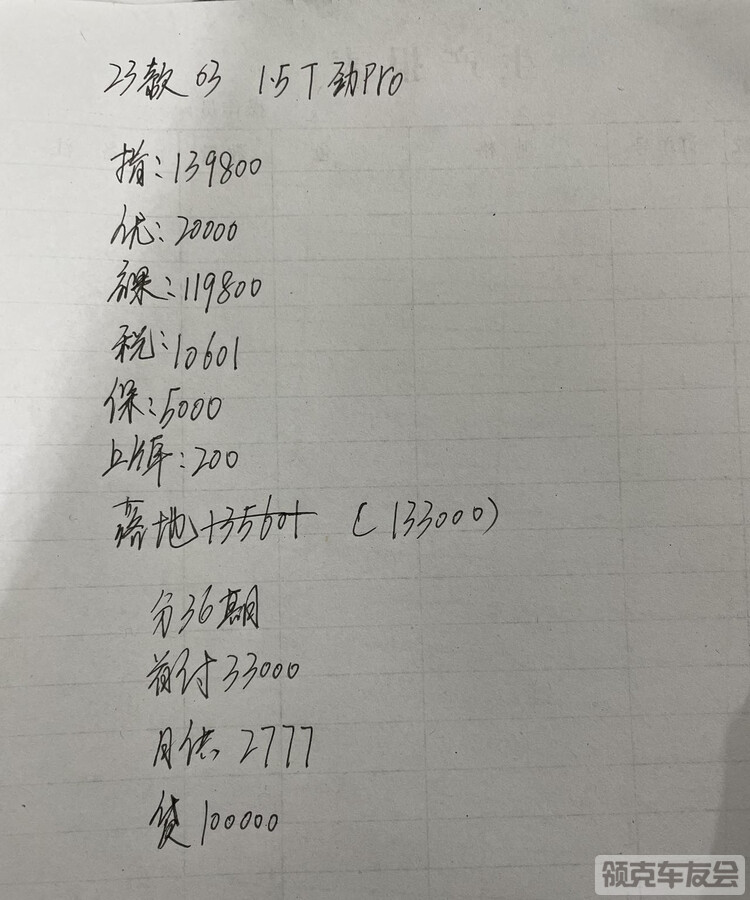 23款 03 1.5T劲Pro
指:139800
优:20000
裸:119800
税:10601
保:5000
上牌:200
落地 135601 (133000)
分36期
首付33000
月供 2777
贷100000
领克车友会